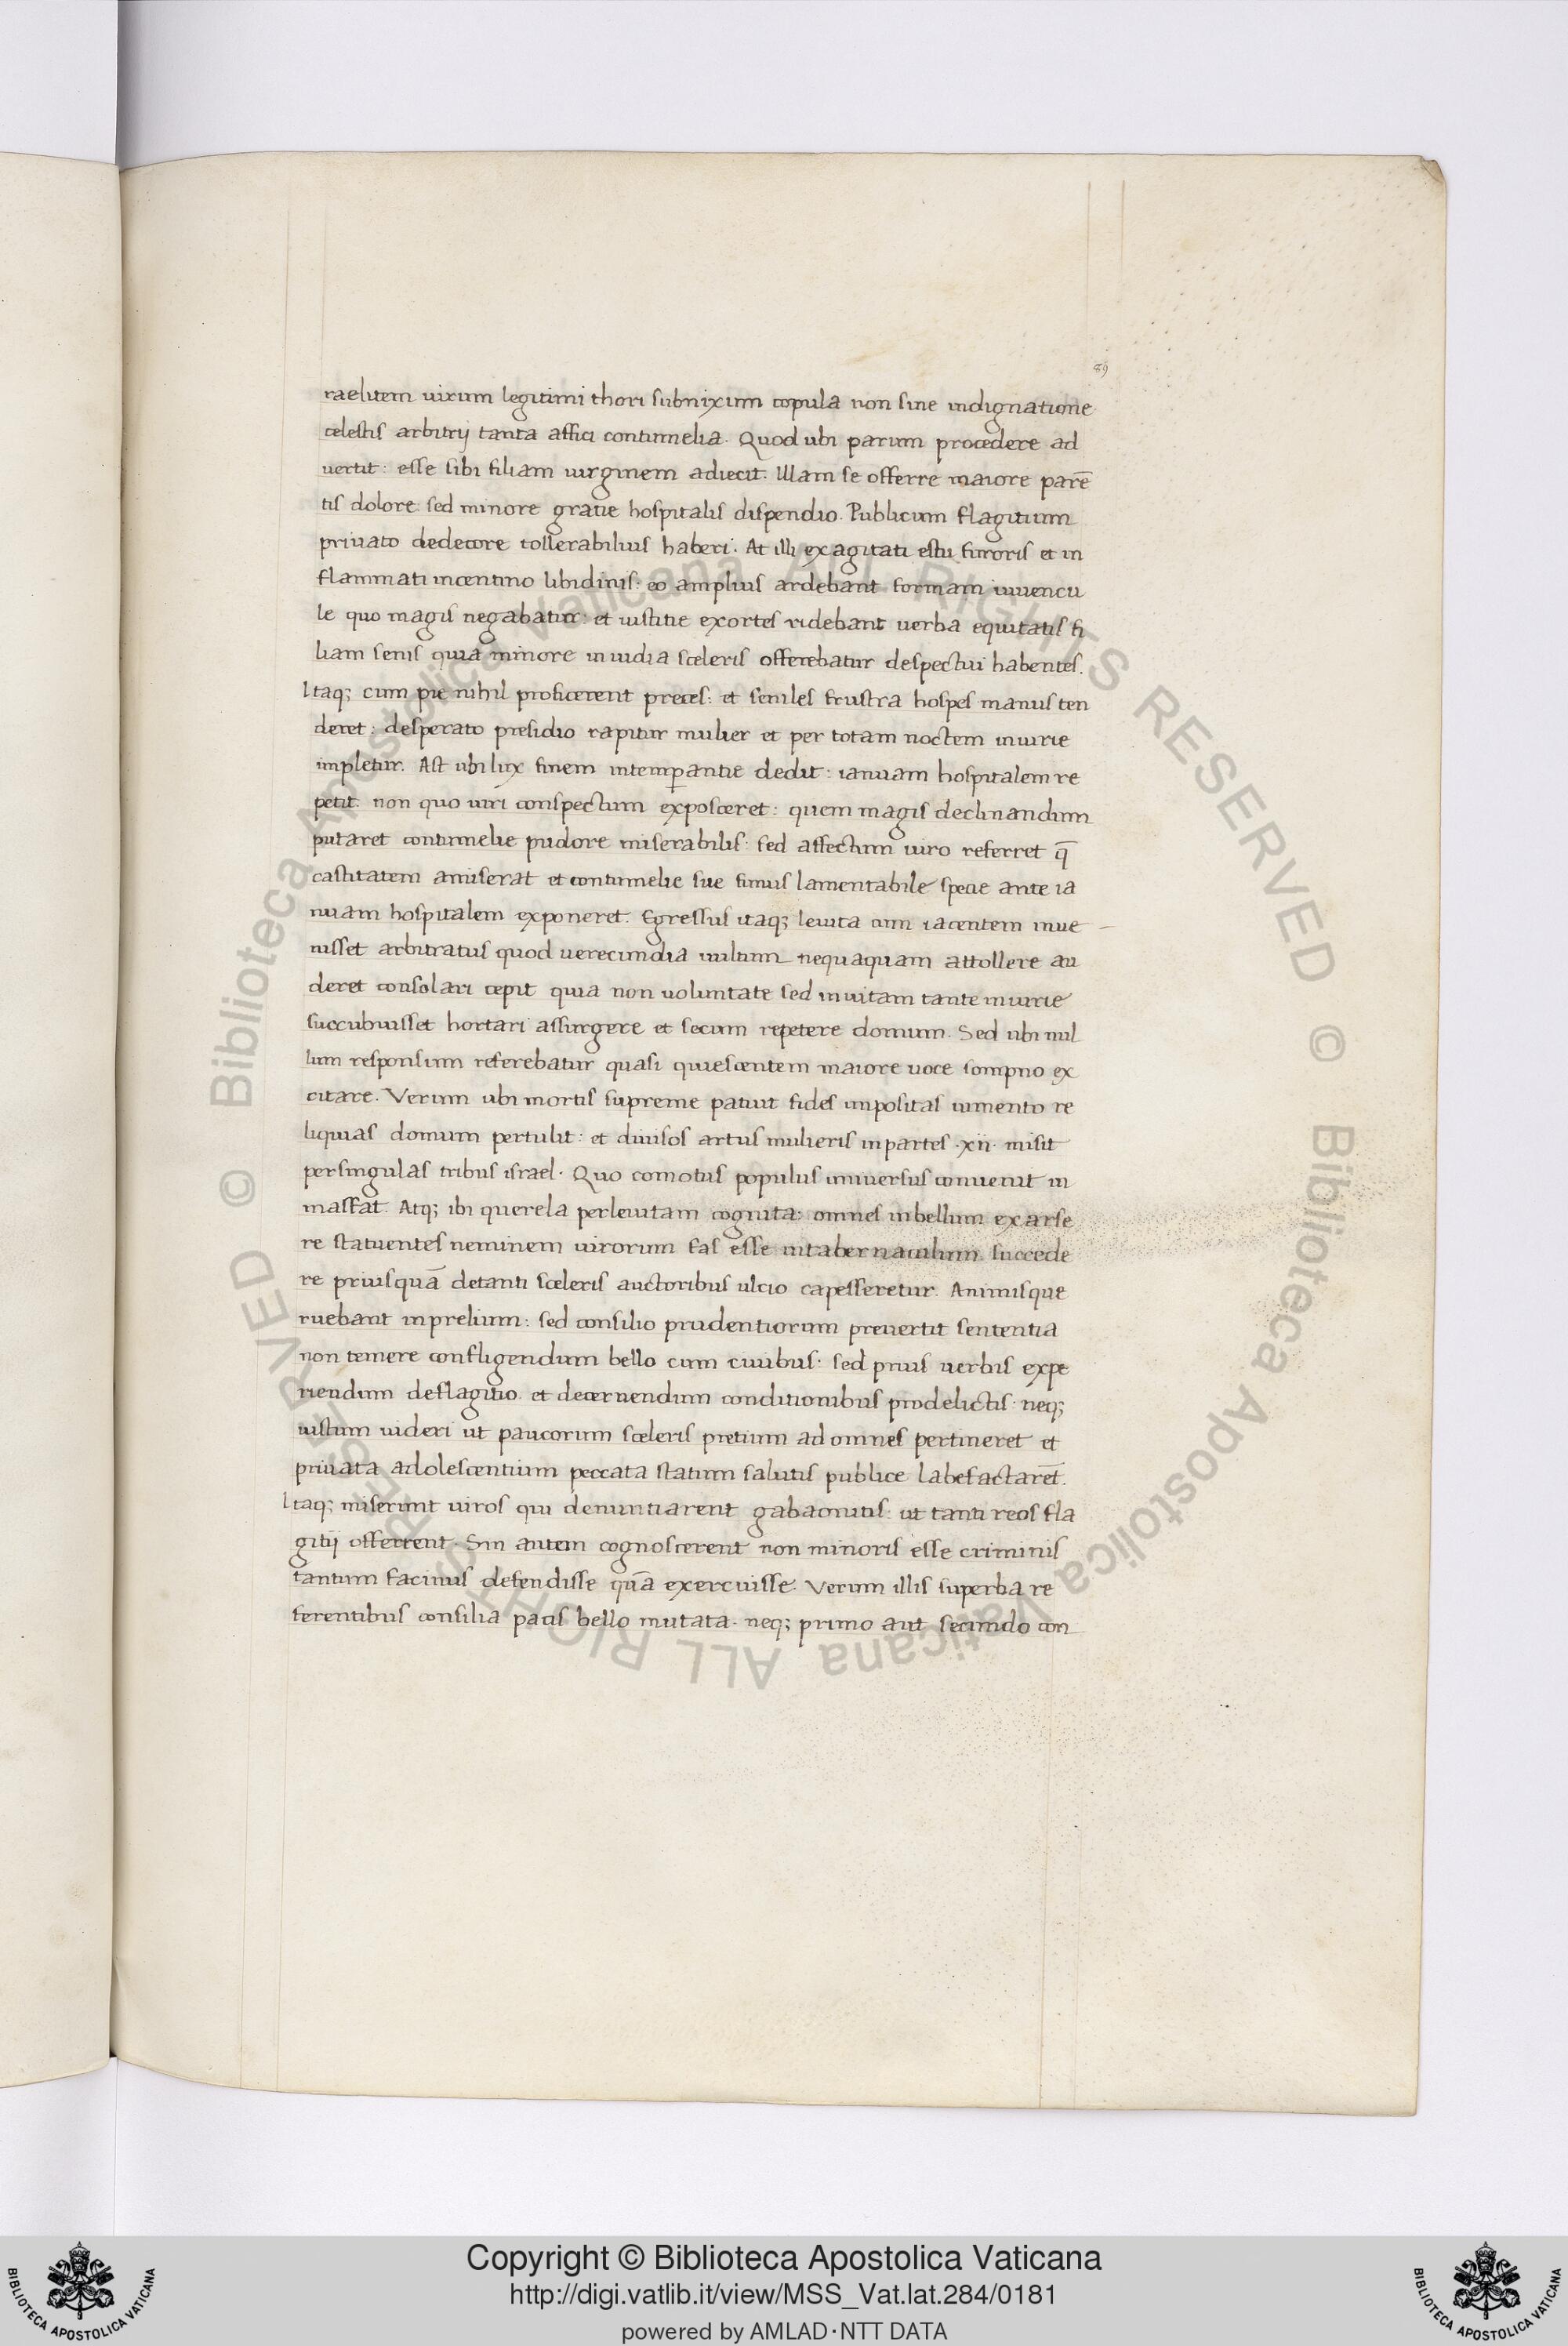 89
raelitem uirum legitimi thori subnixum copula non sine indignatione
celestis arbitrij tanta affici contumelia. Quod ubi parum procedere ad
uertit: esse sibi filiam uirginem adiecit. Illam se offerre maiore parē
tis dolore sed minore gratie hospitalis dispendio. Publicum flagitium
priuato dedecore tollerabilius haberi. At illi exagitati estu furoris et in
flammati incentiuo libidinis: eo amplius ardebant formam iuuencu
le quo magis negabatur: et iustitie exortes ridebant uerba equitatis fi
liam senis quia minore inuidia sceleris offerebatur despectui habentes.
Itaq; cum pie nihil proficerent preces: et seniles frustra hospes manus ten
deret: desperato presidio rapitur mulier et per totam noctem iniurie
impletur. Ast ubi lux finem intemperantie dedit: ianuam hospitalem re
petit. non quo uiri conspectum exposceret: quem magis declinandum
putaret contumelie pudore miserabilis: sed affectum uiro referret q̄
castitatem amiserat et contumelie sue funus lamentabile specie ante ia
nuam hospitalem exponeret. Egressus itaq; leuita cum iacentem inue
nisset arbitratus quod uerecundia uultum nequaquam attollere au
deret consolari cepit quia non uoluntate sed inuitam tante iniurie
succubuisset hortari assurgere et secum repetere domum. Sed ubi nul
lum responsum referebatur quasi quiescentem maiore uoce sompno ex
citare. Verum ubi mortis supreme patuit fides impositas iumento re
liquias domum pertulit: et diuisos artus mulieris inpartes .xii. misit
persingulas tribus israel. Quo comotus populus uniuersus conuenit in
masfat. Atq; ibi querela perleuitam cognita: omnes inbellum exarse
re statuentes neminem uirorum fas esse intabernaculum succede
re priusquā detanti sceleris auctoribus ulcio capesseretur. Animisque
ruebant inprelium: sed consilio prudentiorum preuertit sententia
non temere confligendum bello cum ciuibus: sed prius uerbis expe
riendum deflagitio. et decernendum conditionibus prodelictis: neq;
iustum uideri ut paucorum sceleris pretium ad omnes pertineret et
priuata adolescentium peccata statum salutis publice labefactarēt.
Itaq; miserunt uiros qui denuntiarent gabaonitis: ut tanti reos fla
gitij offerrent. Sin autem cognoscerent non minoris esse criminis
tantum facinus defendisse quā exercuisse. Verum illis superba re
ferentibus consilia pacis bello mutata. neq; primo aut secundo con
© Biblioteca Apostolica Vaticana ALL RIGHTS RESERVED
© Biblioteca Apostolica Vaticana ALL RIGHTS RESERVED
Copyright © Biblioteca Apostolica Vaticana
http://digi.vatlib.it/view/MSS_Vat.lat.284/0181
powered by AMLAD·NTT DATA
BIBLIOTECA APOSTOLICA VATICANA
BIBLIOTECA APOSTOLICA VATICANA